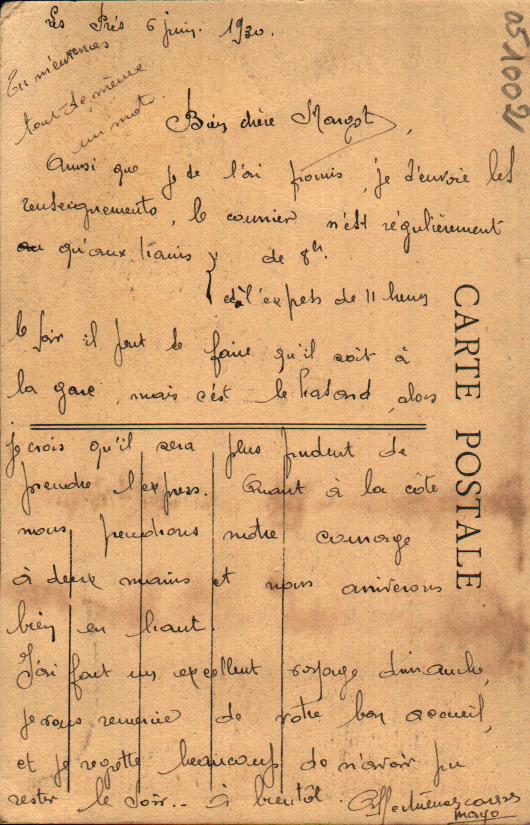 Les Prés 6 juin. 1930.
051002
tout de même
un mot.
Bien chère Margot,
Ainsi que je te l'ai promis, je t'envoie les
renseignements, le courrier n'est régulièrement
qu'aux trains de 8h.
et l'express de 11 heures
le soir il peut se faire qu'il soit à
la gare, mais c'est le hasard, alors
je crois qu'il sera plus prudent de
prendre l'express. Quant à la côte
nous prendrons notre courage
à deux mains et nous arriverons
bien en haut.
J'ai fait un excellent voyage dimanche,
je vous remercie de votre bon accueil,
et je regrette beaucoup de n'avoir pu
rester le soir... à bientôt.
CARTE POSTALE